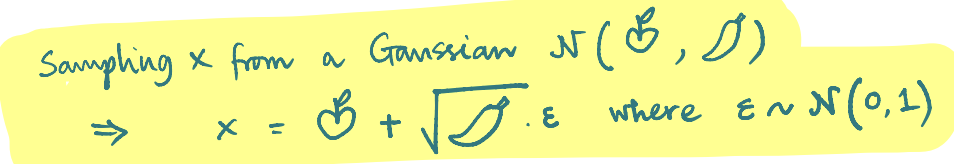 Sampling x from a Gaussian N(🍎, 🌶)
⇒ x = 🍎 + √🌶 . ε where ε ~ N(0,1)